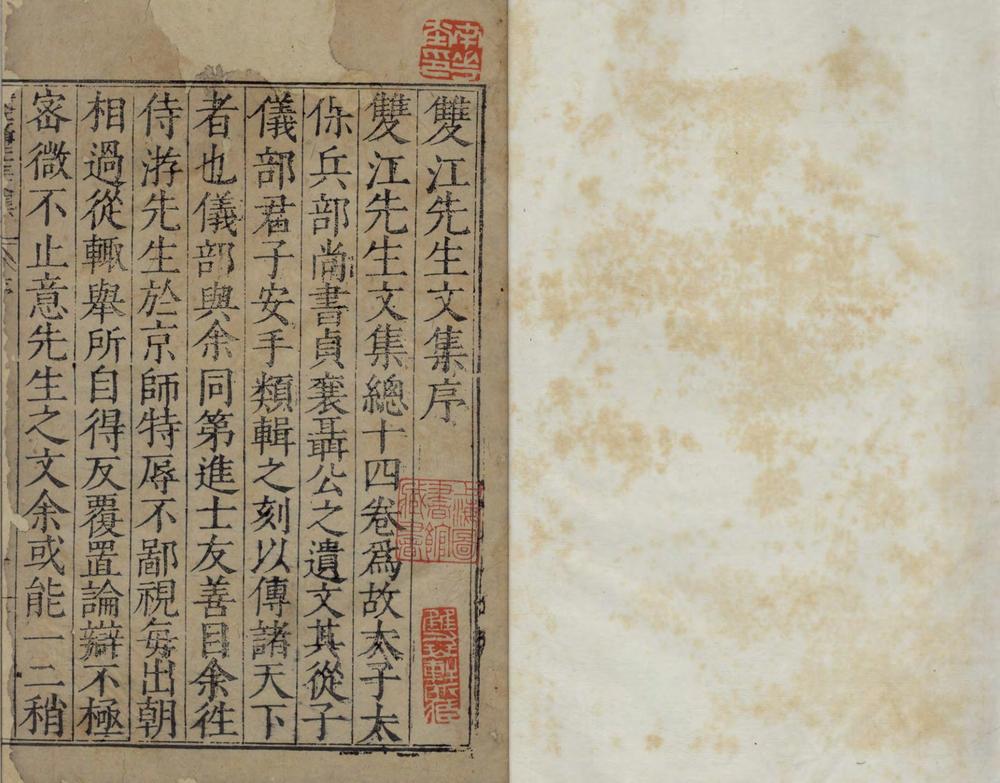 雙江先生文集序
雙江先生文集總十四卷爲故太子太
保兵部尚書貞襄聶公之遺文其從子
儀部君子安手類輯之刻以傳諸天下
者也儀部與余同第進士友善目余徃
侍游先生於京師特辱不鄙視每出朝
相過從輙舉所自得反覆置論辯不極
宻微不止意先生之文余或能一二稍
上海圖書館藏書